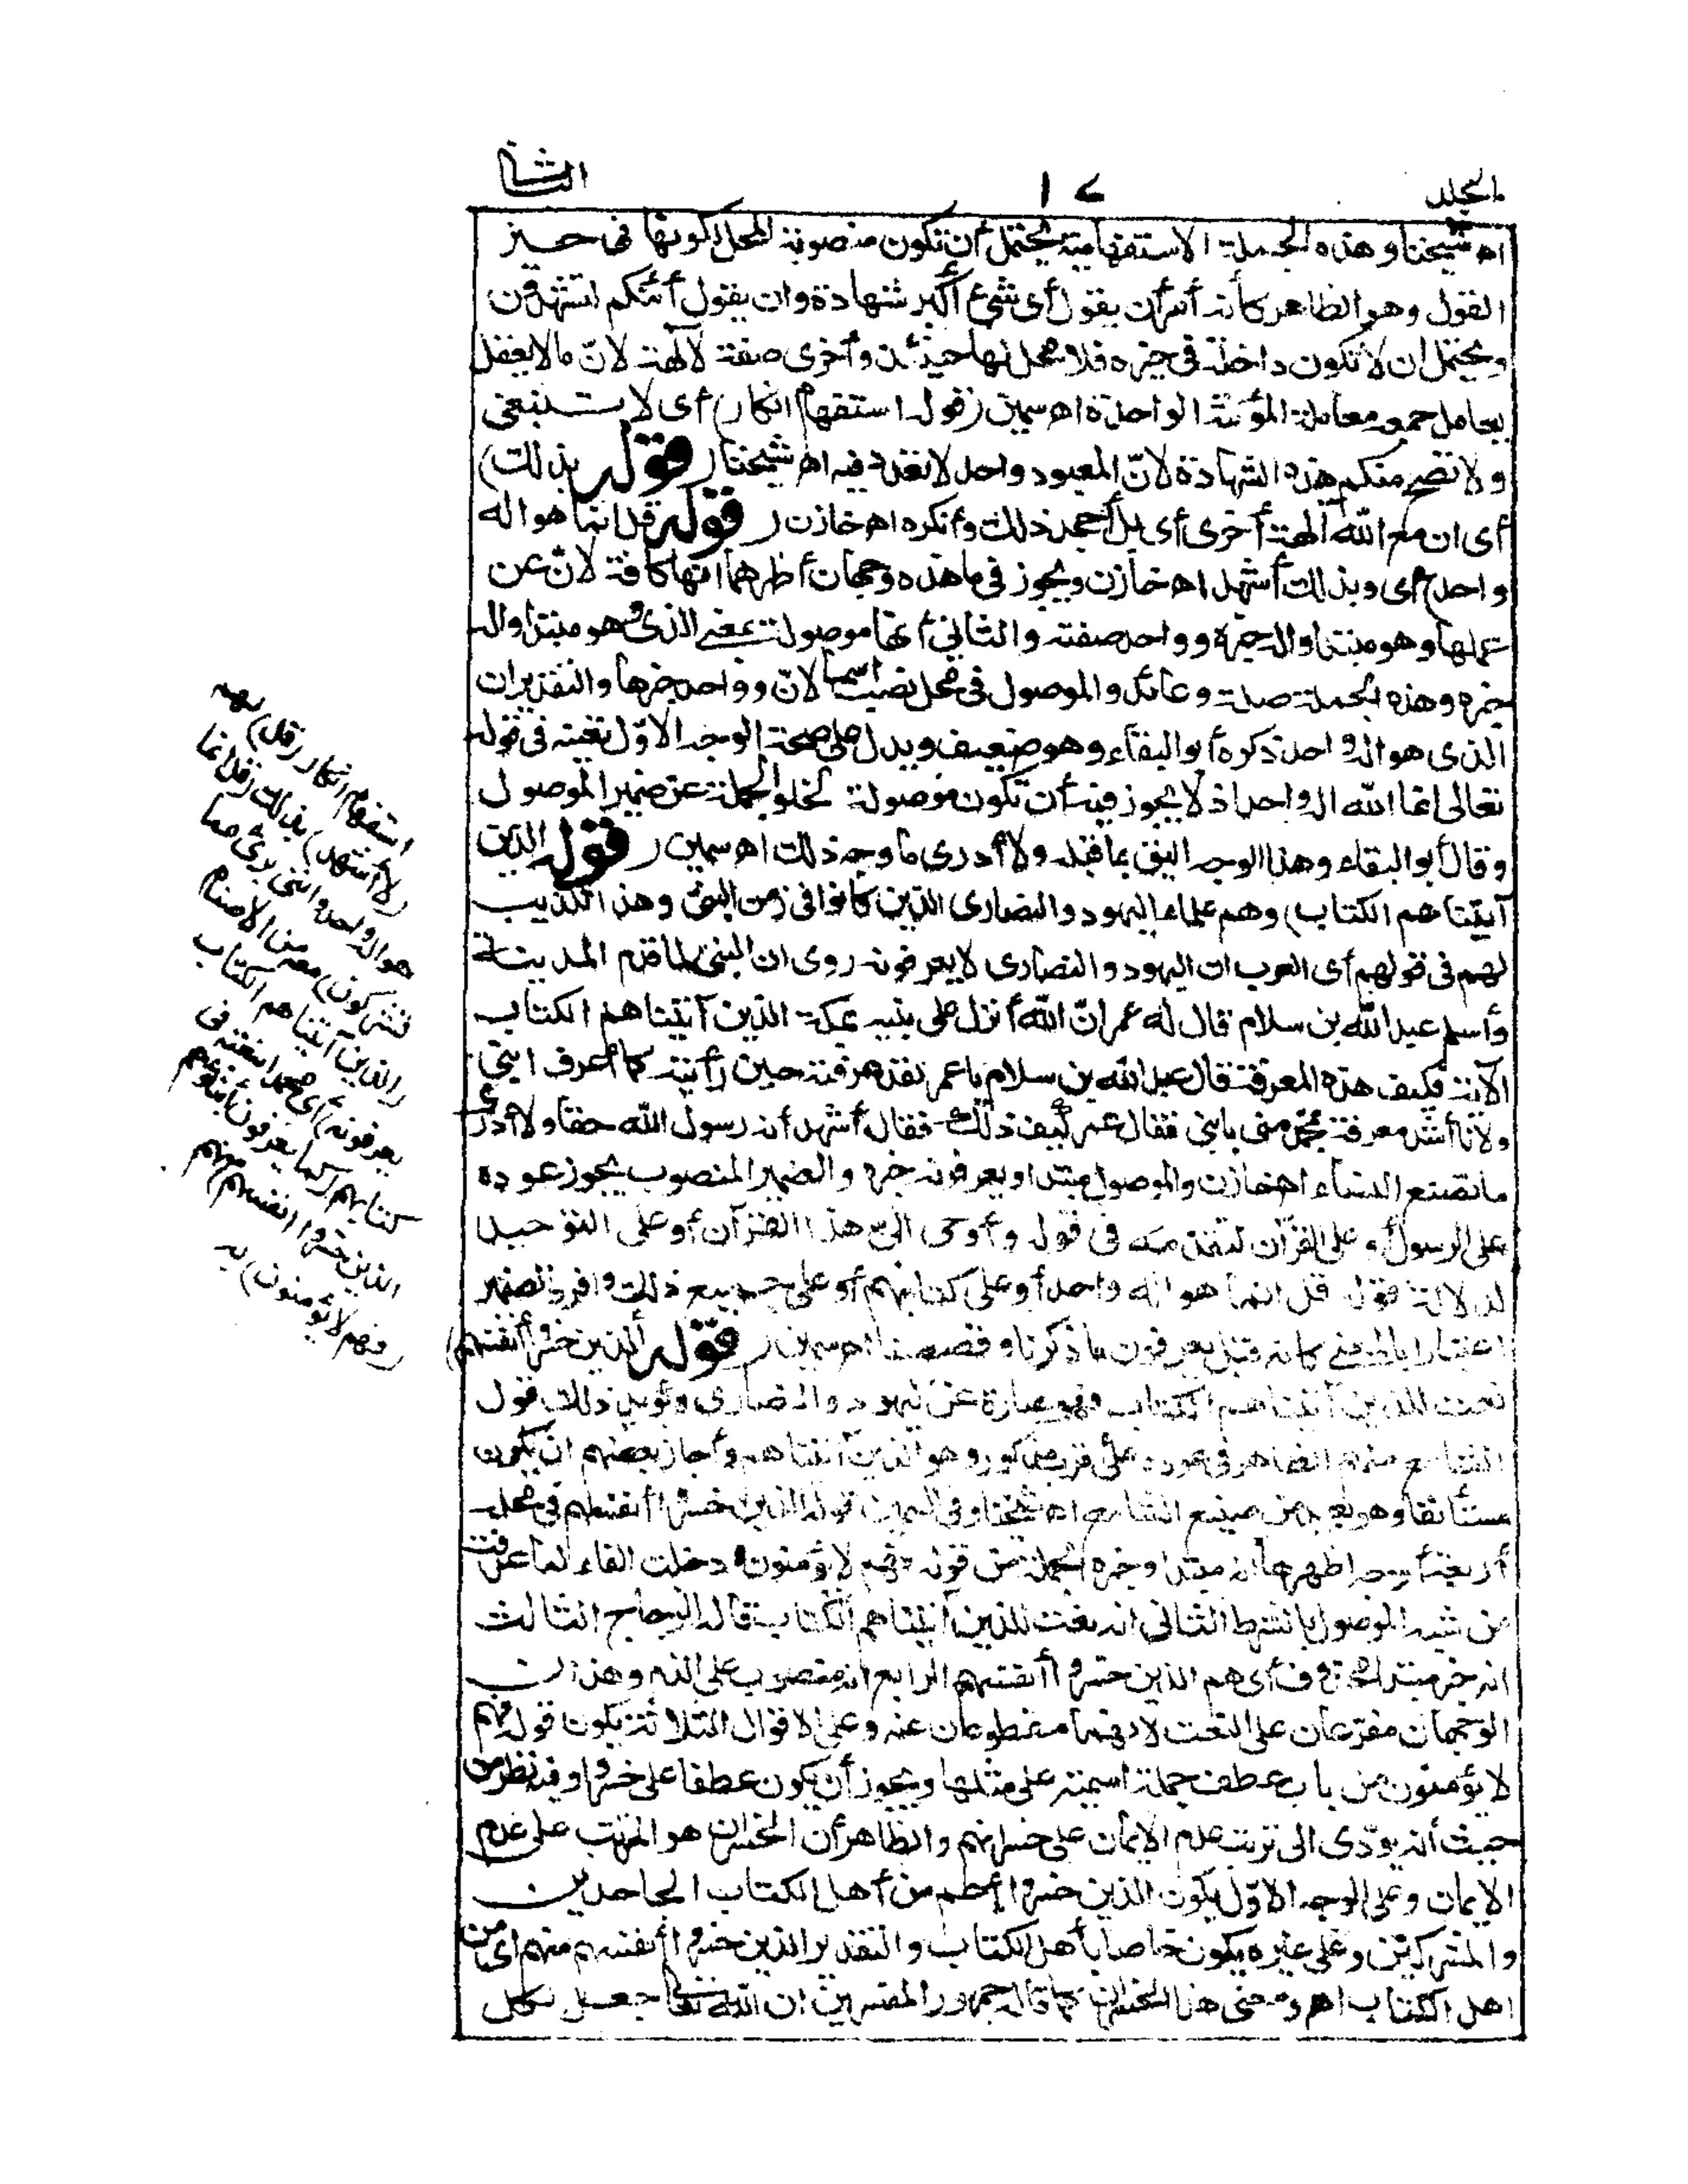 المجلد ١٧ الثانى
اه شيخنا وهذه الجملة الاستفهامية يحتمل أن تكون منصوبة المحل لكونها فى حيز
القول وهو الظاهر كأنه أمر أن يقول أى شىء أكبر شهادة وان يقول أئنكم لتشهدون
ويحتمل ان لا تكون داخلة فى حيزه فلا محل لها حينئذ وأخرى صفة لآلهة لانّ ما لا يعقل
يعامل جمعه معاملة المؤنثة الواحدة اه سمين (قوله استفهام انكار) أى لا ينبغى
ولا تصح منكم هذه الشهادة لانّ المعبود واحد لا تعدد فيه اه شيخنا (قوله بذلك)
أى ان مع الله آلهة أخرى أى بل أجحد ذلك وأنكره اه خازن (قوله قل انما هو اله
واحد) أى وبذلك أشهد اه خازن ويجوز فى ما هذه وجهان أظهرهما انها كافة لانّ عن
عملها وهو مبتدا واله خبره وواحد صفته والثانى أنها موصولة بمعنى الذى وهو مبتدا واله
خبره وهذه الجملة صلة وعائد والموصول فى محل نصب اسما لانّ وواحد خبرها والتقدير ان
الذى هو اله واحد ذكره أبو البقاء وهو ضعيف ويدل على صحة الوجه الاوّل تعينه فى قوله
تعالى انما الله اله واحد اذ لا يجوز فيه أن تكون موصولة لخلو الجملة عن ضمير الموصول
وقال أبو البقاء وهذا الوجه اليق بما قبله ولا أدرى ما وجه ذلك اه سمين (قوله الذين
آتيناهم الكتاب) وهم علماء اليهود والنصارى الذين كانوا فى زمن النبى وهذا تكذيب
لهم فى قولهم أى العرب ان اليهود والنصارى لا يعرفونه روى ان النبى لما قدم المدينة
وأسلم عبد الله بن سلام قال له عمر انّ الله أنزل على نبيه بمكة الذين آتيناهم الكتاب
الآية فكيف هذه المعرفة قال عبد الله بن سلام يا عمر لقد عرفته حين رأيته كما أعرف ابنى
ولأنا أشد معرفة بمحمد منى بابنى فقال عمر كيف ذلك فقال أشهد أنه رسول الله حقا ولا أدرى
ما تصنع النساء اه خازن والموصول مبتدا ويعرفونه خبره والضمير المنصوب يجوز عوده
على الرسول أو على القرآن لتقدمه فى قوله وأوحى الىّ هذا القرآن أو على التوحيد
لدلالة قوله قل انما هو اله واحد أو على كتابهم أو على جميع ذلك وافرد الضمير
اعتبارا بالمعنى كانه قيل يعرفون ما ذكرنا وقصصنا اه سمين (قوله الذين خسروا أنفسهم)
نعت للذين آتيناهم الكتاب فهو عبارة عن اليهود والنصارى ويؤيد ذلك قول
الشارح منهم الظاهر فى عوده على أقرب مذكور وهو الذين آتيناهم وأجاز بعضهم ان يكون
مستأنفا وهو بعيد من صنيع الشارح اه شيخنا وفى السمين قوله الذين خسروا أنفسهم فى محله
أربعة أوجه أظهرها انه مبتدا وخبره الجملة من قوله فهم لا يؤمنون ودخلت الفاء لما عرفت
من شبه الموصول بالشرط الثانى انه نعت للذين آتيناهم الكتاب قاله الزجاج الثالث
انه خبر مبتدا محذوف أى هم الذين خسروا أنفسهم الرابع انه منصوب على الذم وهذان
الوجهان مفرّعان على النعت لانهما مقطوعان عنه وعلى الاقوال الثلاثة يكون قوله فهم
لا يؤمنون من باب عطف جملة اسمية على مثلها ويجوز أن يكون عطفا على خسروا وفيه نظر من
حيث أنه يودّى الى ترتب عدم الايمان على خسرانهم والظاهر أن الخسران هو المرتب على عدم
الايمان وعلى الوجه الاوّل يكون الذين خسروا أعم من أهل الكتاب الجاحدين
والمشركين وعلى غيره يكون خاصا بأهل الكتاب والتقدير الذين خسروا أنفسهم منهم أى من
اهل الكتاب اه ومعنى هذا الخسران كما قاله جمهور المفسرين ان الله تعالى جعل لكل
استفهام انكار (قل) لهم
(لا أشهد) بذلك (قل انما
هو اله واحد واننى برىء مما
تشركون) معه من الاصنام
(الذين آتيناهم الكتاب
يعرفونه) أى محمدا بنعته فى
كتابهم (كما يعرفون أبناءهم
الذين خسروا أنفسهم) منهم
(فهم لا يؤمنون) به